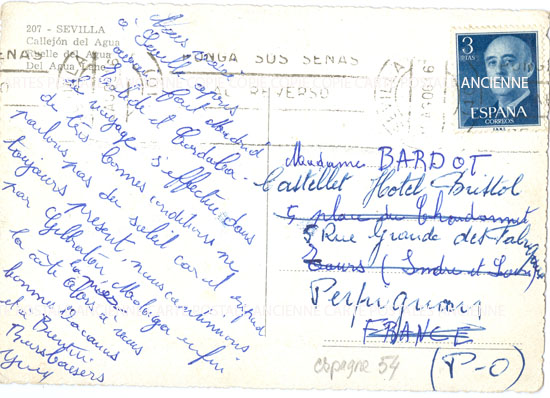 207 - SEVILLA
Callejón del Agua
Ruelle del Agua
Del Agua Lane
PONGA SUS SEÑAS
AL REVERSO
3
PTAS
ANCIENNE
ESPAÑA
CORREOS
à Séville après
avoir fait Madrid
Tolède et Cordoba.
Le voyage s'effectue dans
de très bonnes conditions ne
parlons pas du soleil car il est
toujours présent, nous continuons
par Gibraltar Malaga enfin
la côte. Alors à vous
bonnes vacances
et Bientôt
Bons baisers
Madame BARDOT
Castellet Hotel Bristol
5, place du Chardonnet
5 Rue Grande des Fabriques
Tours (Indre et Loire)
Perpignan
FRANCE
(P-O)
espagne 54